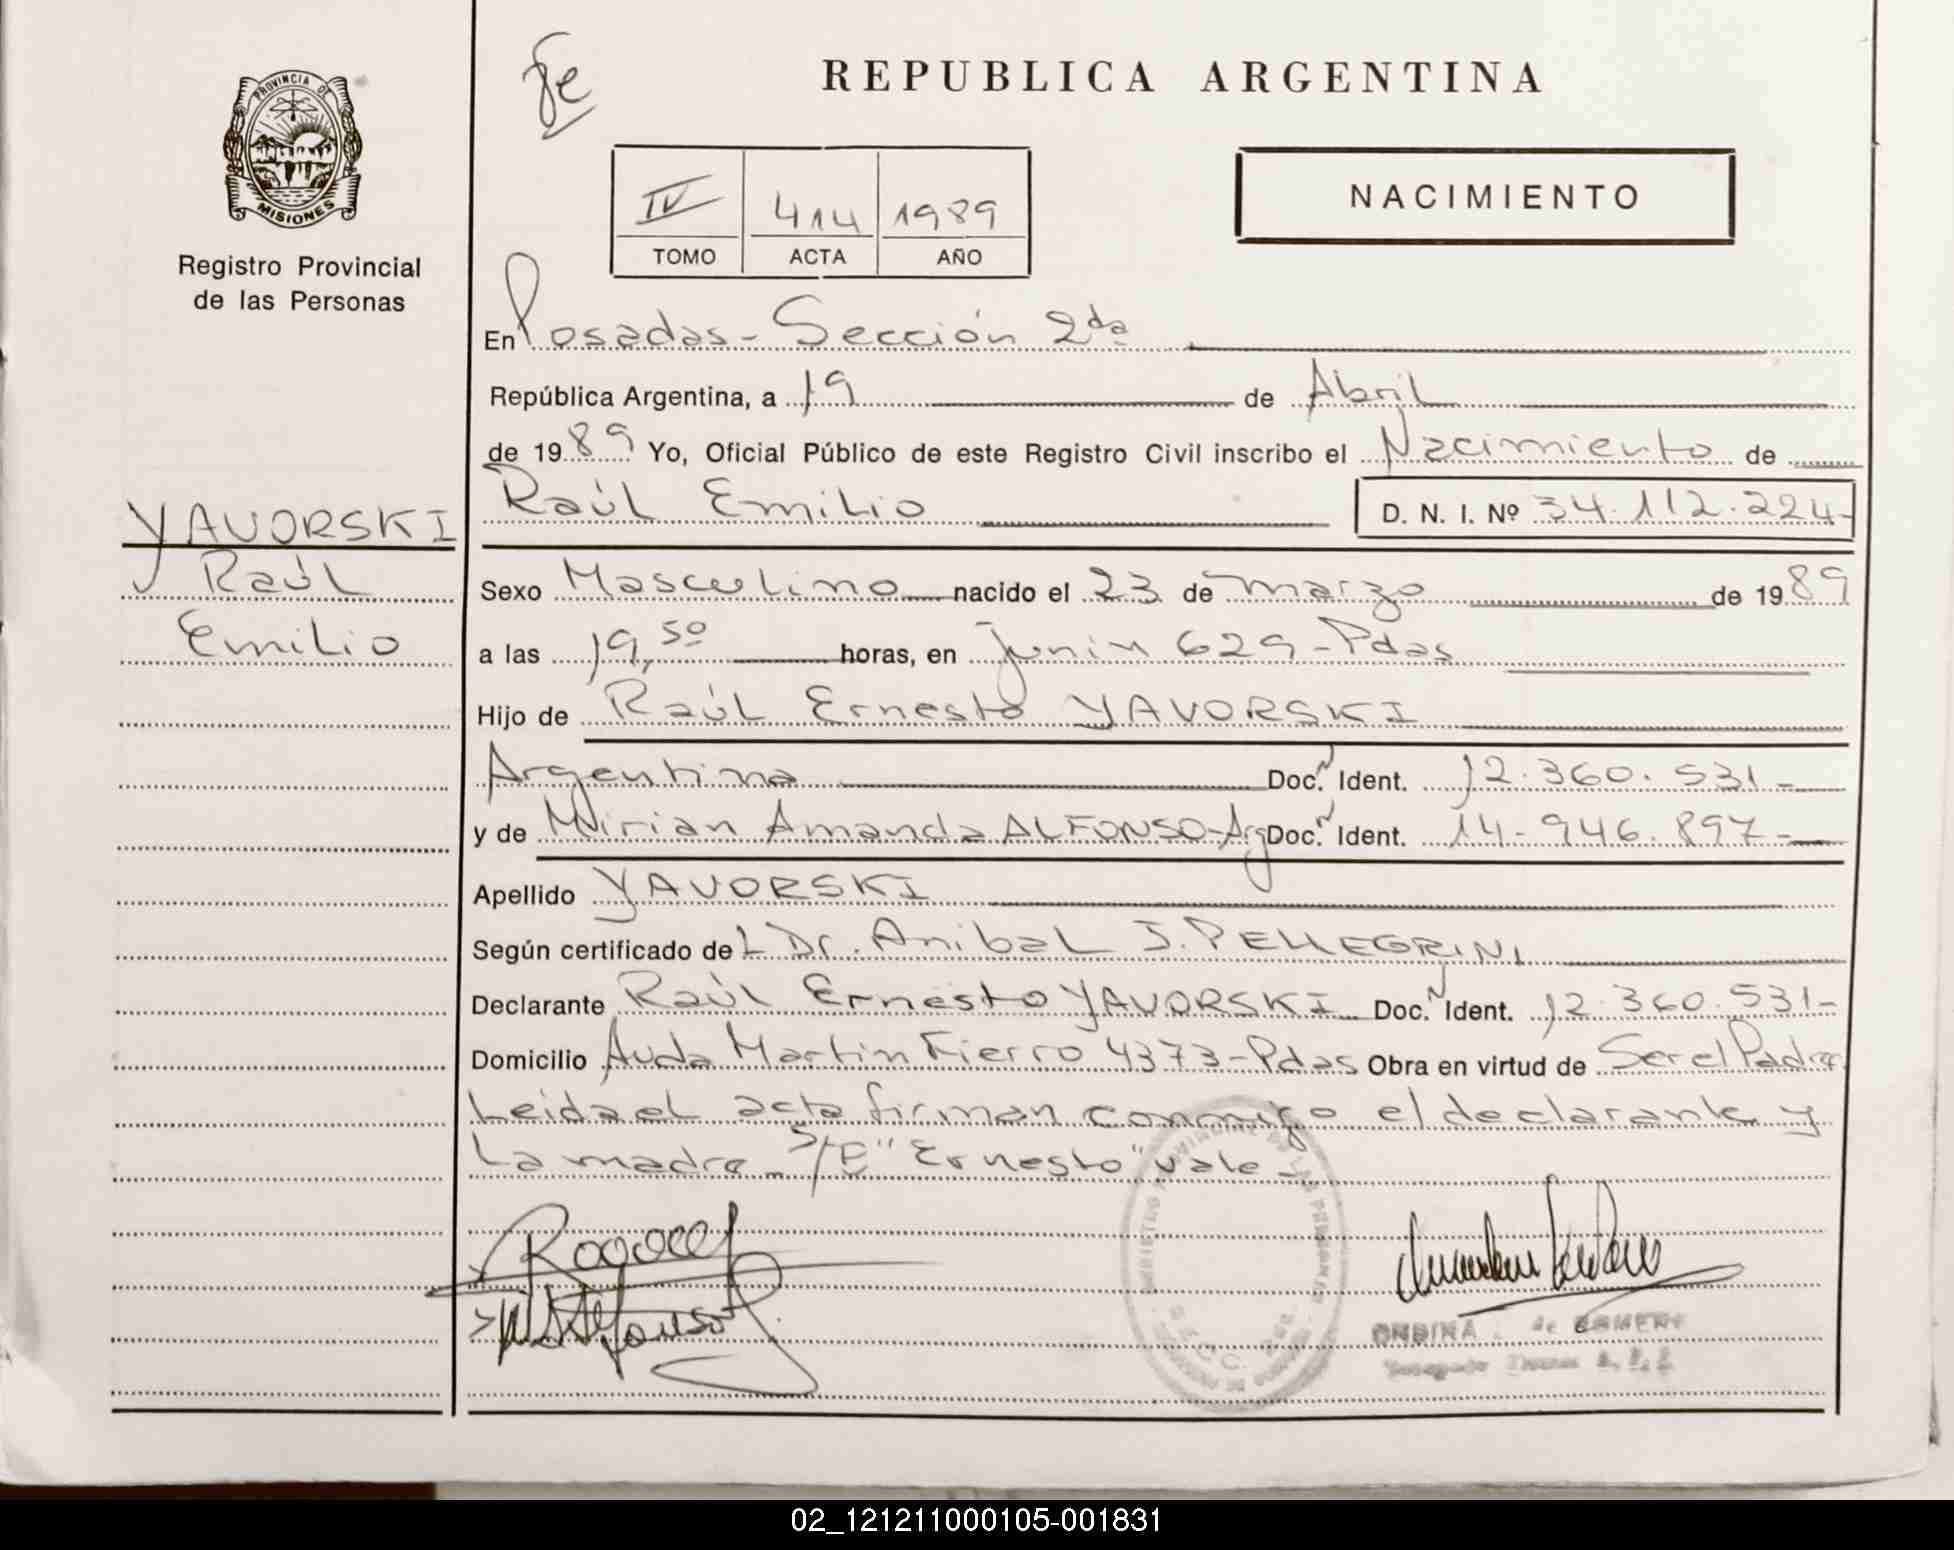 PROVINCIA DE
MISIONES
Registro Provincial
de las Personas
YAVORSKI
Raúl
Emilio
REPUBLICA ARGENTINA
IV 414 1989
TOMO ACTA AÑO
NACIMIENTO
En Posadas - Sección 2da
República Argentina, a 19 de Abril
de 1989 Yo, Oficial Público de este Registro Civil inscribo el Nacimiento de
Raúl Emilio D. N. I. Nº 34.112.224-
Sexo Masculino nacido el 23 de marzo de 1989
a las 19,50 horas, en Junin 629 - Pdas
Hijo de Raúl Ernesto YAVORSKI
Argentina Doc. Ident. 12.360.531-
y de Mirian Amanda ALFONSO - Arg Doc. Ident. 14.946.897-
Apellido YAVORSKI
Según certificado del Dr. Anibal J. PELLEGRINI
Declarante Raúl Ernesto YAVORSKI Doc. Ident. 12.360.531-
Domicilio Avda Martin Fierro 4373 - Pdas Obra en virtud de Ser el Padre
Leida el acta firman conmigo el declarante y
La madre - S/R "Ernesto" vale -
ONDINA de
02_121211000105-001831